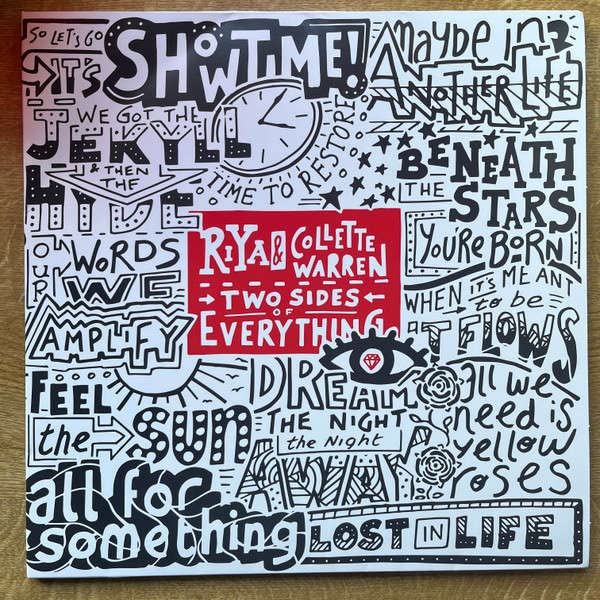 SO LET'S GO
IT'S
SHOWTIME!
WE GOT THE
JEKYLL
& THEN
THE
HYDE
TIME TO RESTORE
Maybe in
ANOTHER LIFE
BENEATH
THE
STARS
YOU'RE BORN
RIYA & COLLETTE
WARREN
TWO SIDES
OF
EVERYTHING
OUR
WORDS
WE
AMPLIFY
WHEN IT'S MEANT
to be
IT FLOWS
FEEL
the
SUN
DREAM
THE NIGHT
the Night
AWAY
all we
need is
yellow
roses
all for
something
LOST IN LIFE